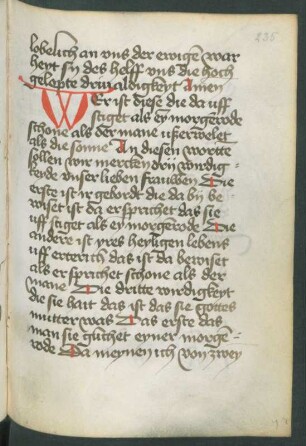 235
lobelich an vns der ewigē war
heyt sy des helff vns die hoch
gelepte driualdigkeyt Amen
Wer ist diese die da uff
stiget als ey morgērode
schone als der mane ußerwelet
als die sonne An diesen wortte
sollen wir mercken drÿ wirdig
keyde vnser lieben frauwen Die
erste ist ir gebordt die da by be
wiset ist da er sprachet das sie
uff stiget als ey morgērode Die
andere ist yres heyligen lebens
uff erterich das ist da bewiset
als er sprachet schone als der
mane Die dritte wirdigkeyt
die sie hait das ist das sie gottes
mutter was Das erste das
man sie glichet eyner morgē
rode Da meynen ich von zwey